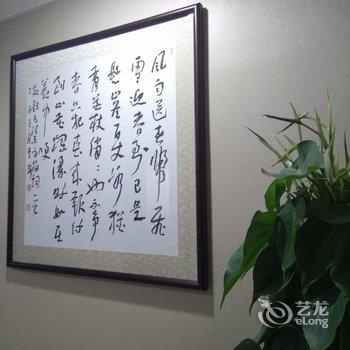 风雨送春归飞
雪迎春到已是
悬崖百丈冰犹
有花枝俏俏也不争
春只把春来报待
到山花烂漫时她在
丛中笑
艺龙
eLong